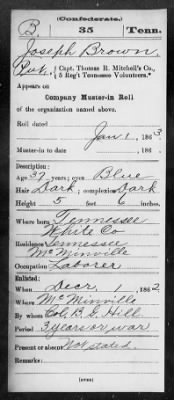 (Confederate.)
B. 35 Tenn.
Joseph Brown
Pvt., Capt. Thomas R. Mitchell's Co.,
5 Reg't Tennessee Volunteers.*
Appears on
Company Muster-in Roll
of the organization named above.
Roll dated
Jan 1, 1863
Muster-in to date , 186 .
Description:
Age 37 years; eyes Blue
Hair Dark; complexion Dark
Height 5 feet 6 inches.
Where born Tennessee
White Co
Residence Tennessee
McMinville
Occupation Laborer
Enlisted:
When Decr, 1, 1862
Where McMinville
By whom Col, B. J. Hill
Period 3 years or war
Present or absent Not stated
Remarks:
(OVER)